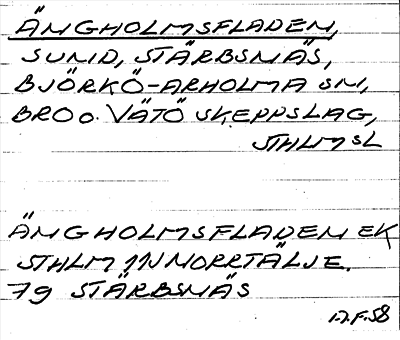 ÄNGHOLMSFLADEN,
SUND, STÄRBSNÄS,
BJÖRKÖ-ARHOLMA SN,
BRO o. VÄTÖ SKEPPSLAG,
STHLMSL
ÄNGHOLMSFLADEN EK
STHLM 11J NORRTÄLJE.
79 STÄRBSNÄS